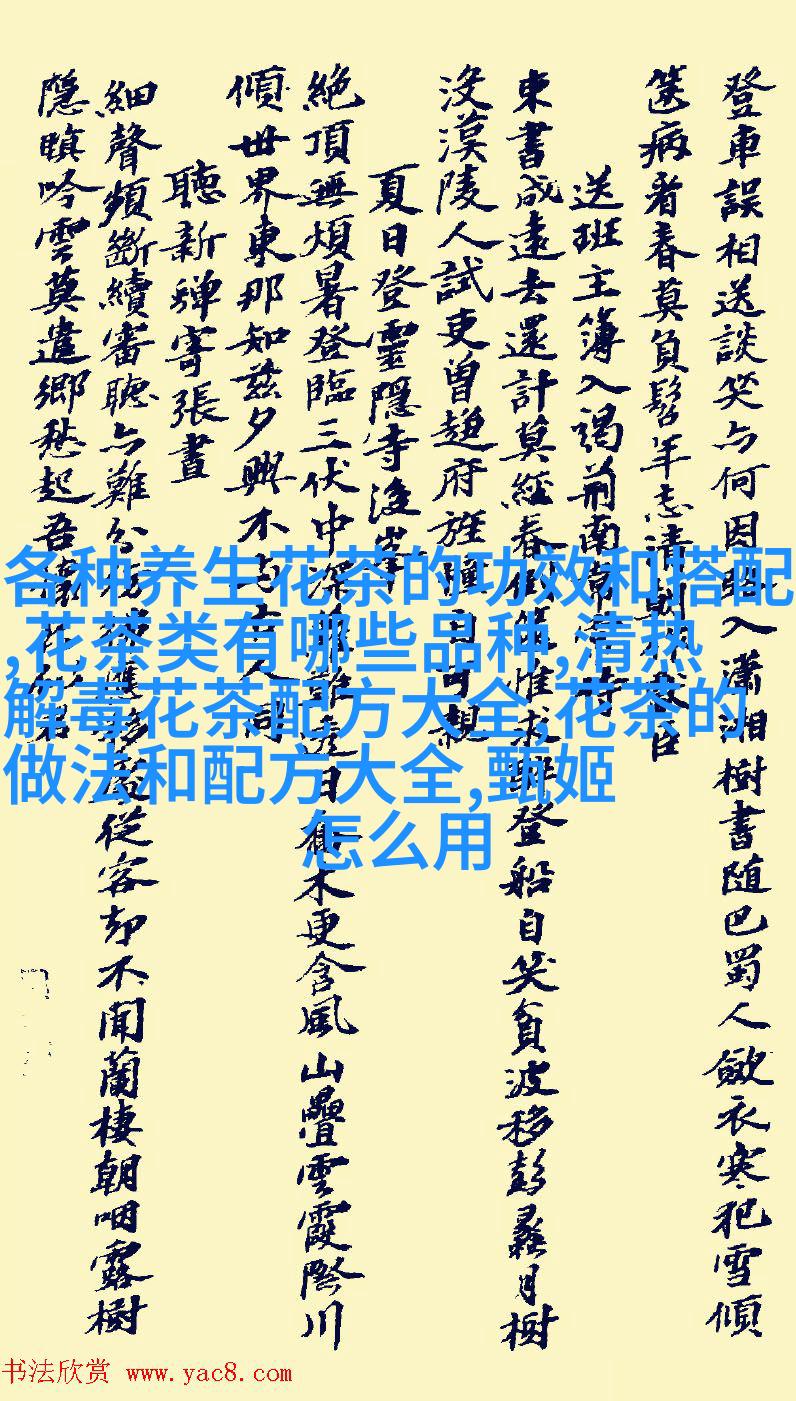 登車誤相送談笑亦何因入瀟湘樹書随巴蜀人斂衣寒犯雪傾
篋病看春莫負髫年志清臣
送班主簿入謁荊南韋常侍
東書成遠去還計莫經春求醉登船自笑貧波移彭蠡月樹
没漢陵人試吏曾趨府旌幢自可親
夏日登靈隱寺後峯
絶頂無煩暑登臨三伏中深蘿難透日喬木更含風山疊雲霞際川
傾世界東那知兹夕興不与古人同
聽新蟬寄張晝
細聲頻斷續審聽亦難分應移從容却不聞蘭棲朝咽露樹
隠瞑吟雲莫遣鄉愁起吾
各种养生花茶的功效和搭配
,花茶类有哪些品种,清热
解毒花茶配方大全,花茶的
做法和配方大全,甄姬
怎么用
书法欣赏 www.yac8.com